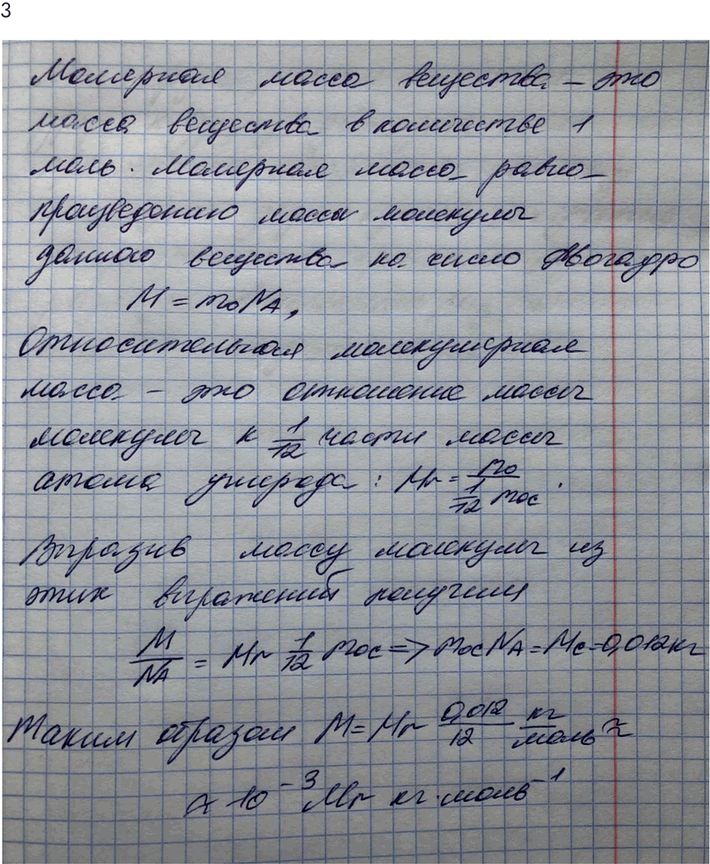 3
Молярная масса вещества – это
масса вещества в количестве 1
моль. Молярная масса равна
произведению массы молекулы
данного вещества на число Авогадро
M = m₀Nₐ,
Относительная молекулярная
масса – это отношение массы
молекулы к 1/12 части массы
атома углерода: Mr = m₀ / (1/12 m₀c).
Выразив массу молекулы из
этих выражений получим
M/Nₐ = Mr 1/12 m₀c => m₀cNₐ = Mc = 0,012кг
Таким образом M = Mr 0,012/12 кг/моль ≈
≈ 10⁻³ Mr кг·моль⁻¹